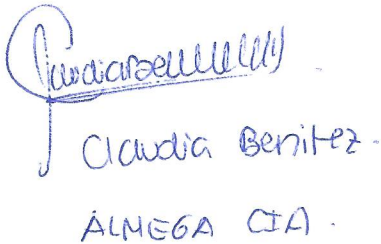 Claudia Benitez.
ALMEGA CIA.